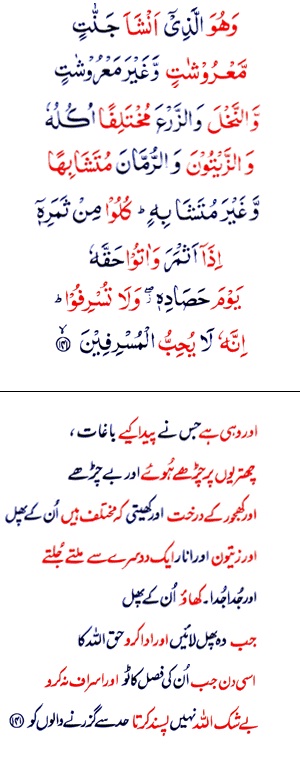 وَهُوَ الَّذِیْۤ اَنْشَاَ جَنّٰتٍ
مَّعْرُوْشٰتٍ وَّغَیْرَ مَعْرُوْشٰتٍ
وَّالنَّخْلَ وَالزَّرْعَ مُخْتَلِفًا اُكُلُهٗ
وَالزَّیْتُوْنَ وَالرُّمَّانَ مُتَشَابِهًا
وَّغَیْرَ مُتَشَابِهٍ ؕ كُلُوْا مِنْ ثَمَرِهٖۤ
اِذَاۤ اَثْمَرَ وَاٰتُوْا حَقَّهٗ
یَوْمَ حَصَادِهٖ ۖ وَلَا تُسْرِفُوْا ؕ
اِنَّهٗ لَا یُحِبُّ الْمُسْرِفِیْنَ ﴿۱۴۱﴾
اور وہی ہے جس نے پیدا کیے باغات ،
چھتریوں پر چڑھے ہُوئے اور بے چڑھے
اور کھجور کے درخت اور کھیتی کہ مختلف ہیں اُن کے پھل
اور زیتون اور انار ایک دوسرے سے ملتے جُلتے
اور جُدا جُدا۔ کھاؤ اُن کے پھل
جب وہ پھل لائیں اور ادا کرو حق اللہ کا
اسی دن جب اُن کی فصل کاٹو اور اسراف نہ کرو
بے شک اللہ نہیں پسند کرتا حد سے گزرنے والوں کو ﴿۱۴۱﴾